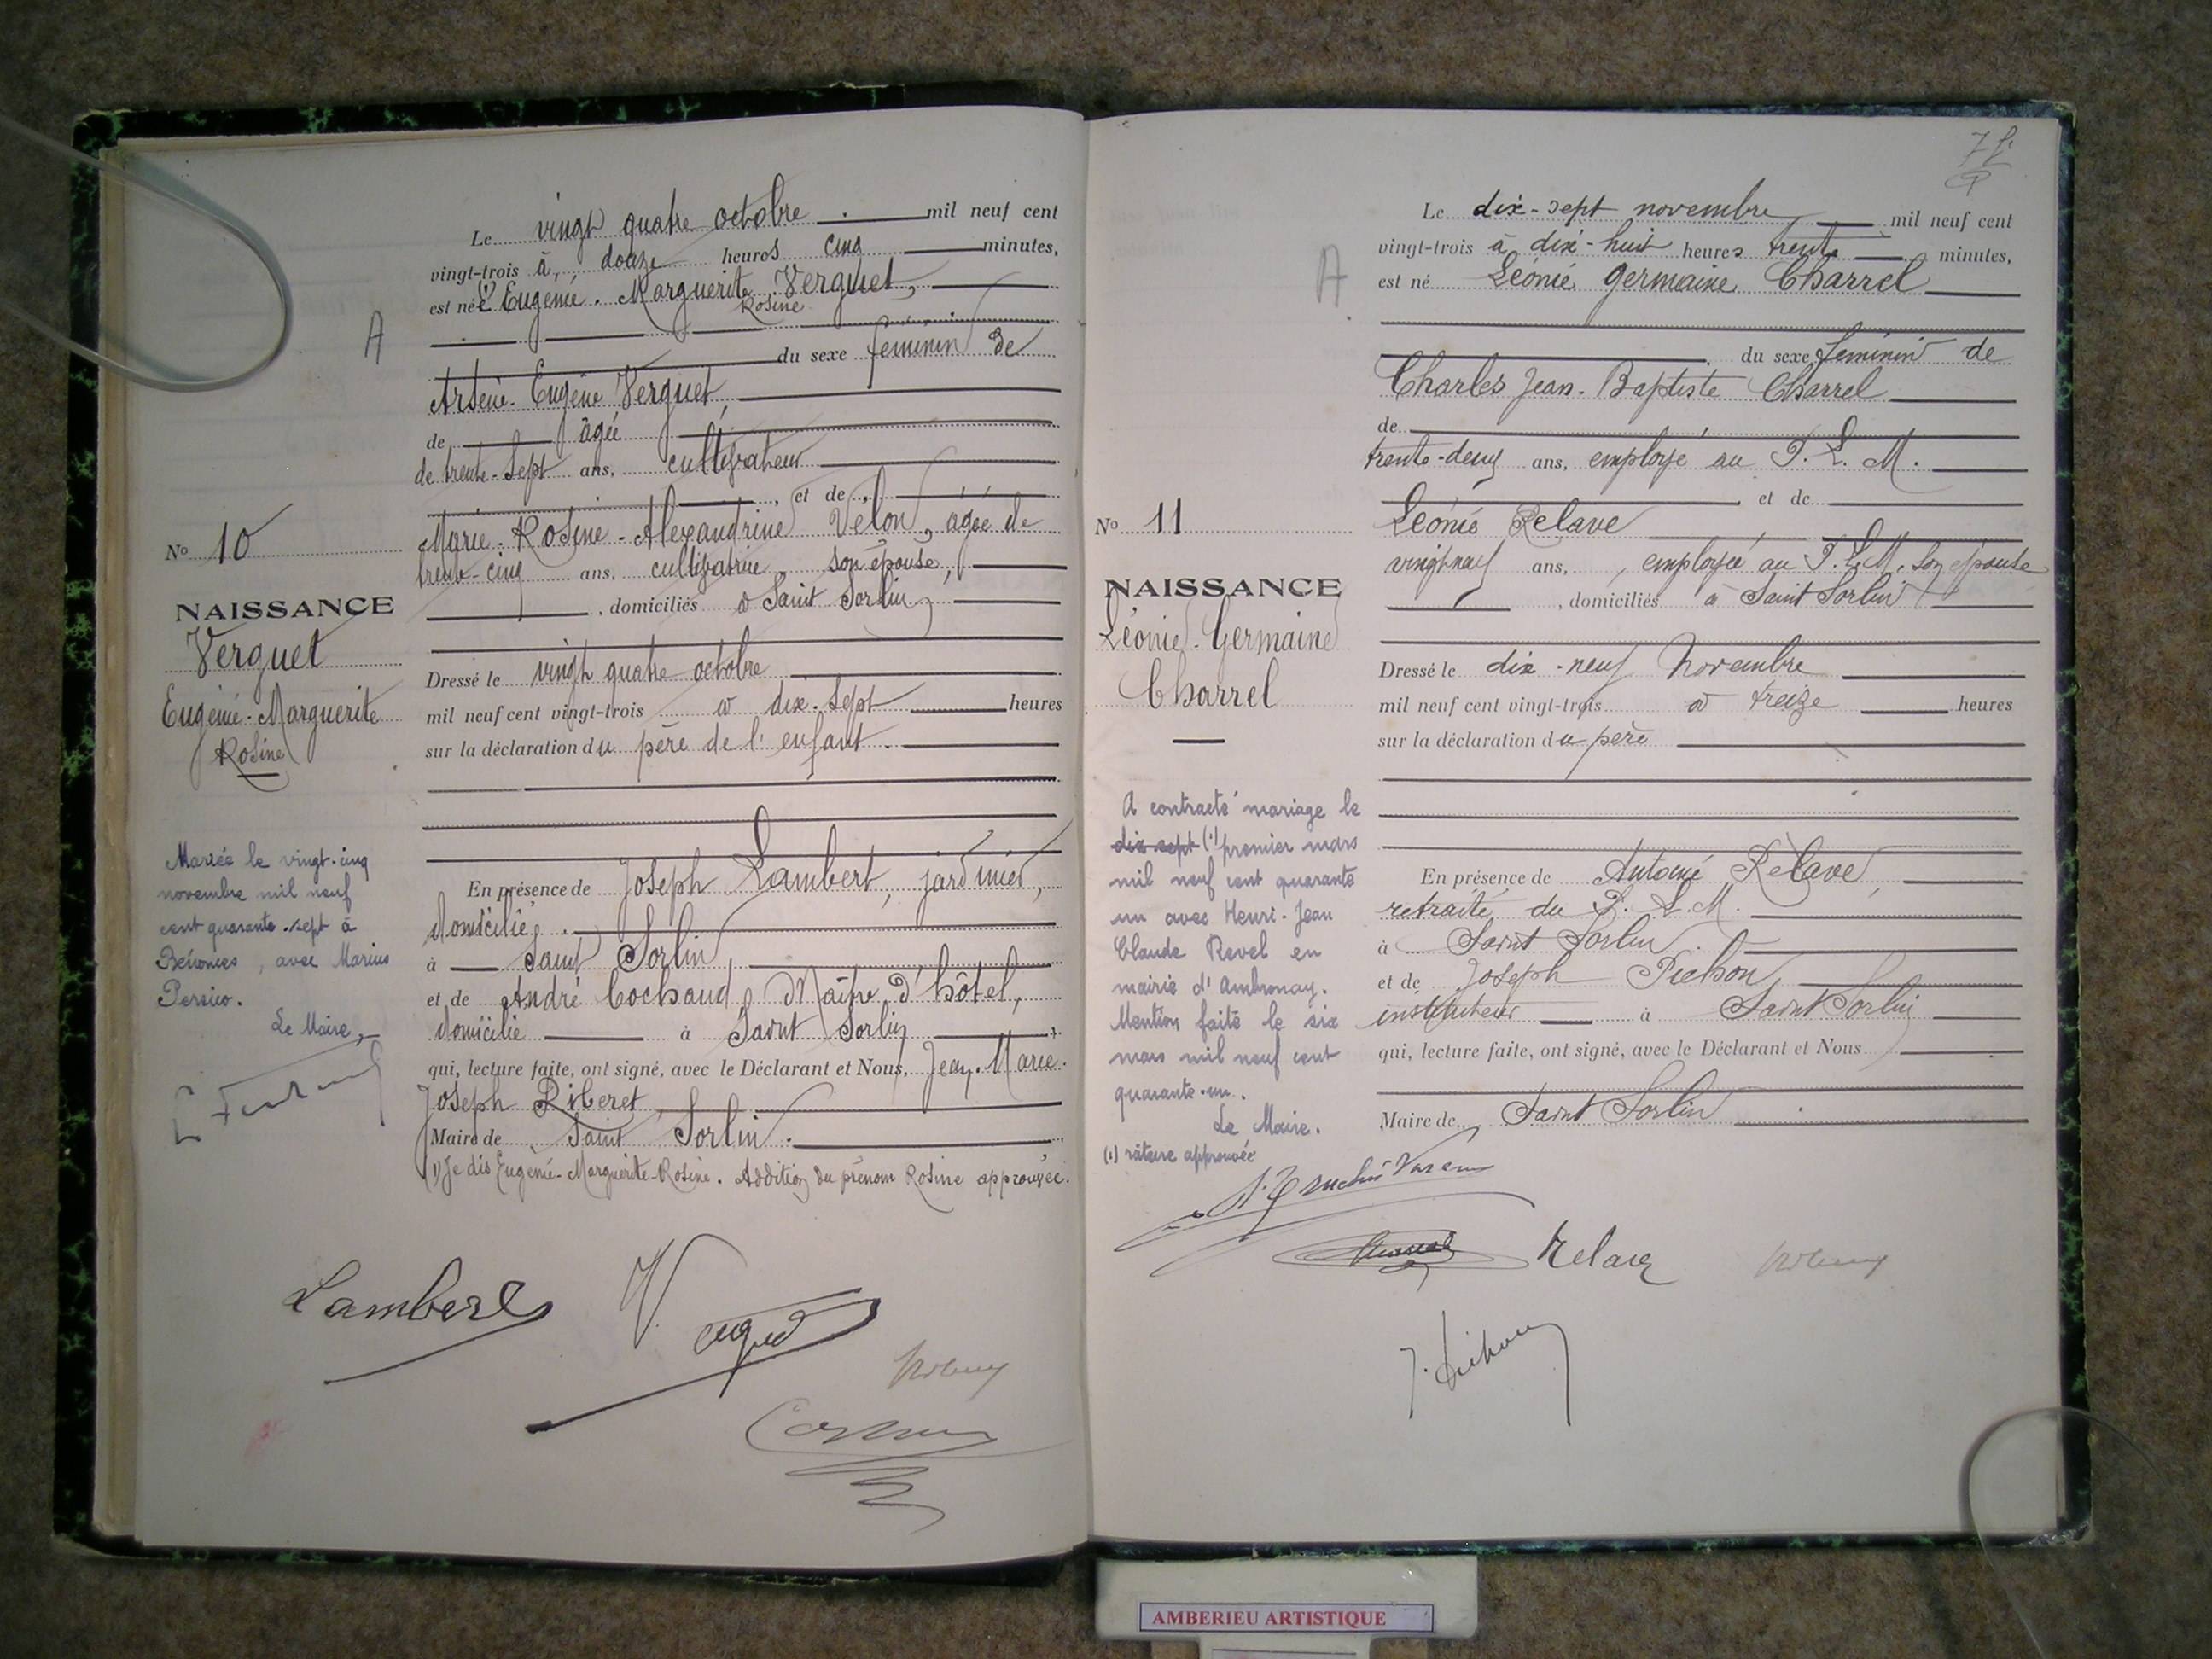 Le vingt quatre octobre mil neuf cent
vingt-trois à douze heures cinq minutes,
est née (1) Eugénie-Marguerite Verguet,
Rosine
A
du sexe féminin de
Arsène-Eugène Verguet,
de âgé
de trente-sept ans, cultivateur
et de
Marie-Rosine-Alexandrine Velon, agée de
trente-cinq ans, cultivatrice, son épouse,
domiciliés à Saint Sorlin,
Dressé le vingt quatre octobre
mil neuf cent vingt-trois à dix-sept heures
sur la déclaration du père de l'enfant.
En présence de Joseph Lambert, jardinier,
domicilié
à Saint Sorlin
et de André Cochaud, Maître d'hôtel,
domicilié à Saint Sorlin
qui, lecture faite, ont signé, avec le Déclarant et Nous, Jean-Marie-
Joseph Riberet
Maire de Saint Sorlin.
(1) Je dis Eugénie-Marguerite-Rosine. Addition du prénom Rosine approuvée.
N° 10
NAISSANCE
Verguet
Eugénie-Marguerite
Rosine
Mariée le vingt-cinq
novembre mil neuf
cent quarante-sept à
, avec Marius
Persico.
Le Maire,
Lambert
Verguet
7
Le dix-sept novembre mil neuf cent
vingt-trois à dix-huit heures trente minutes,
A
est né Léonie Germaine Charrel
du sexe féminin de
Charles Jean-Baptiste Charrel
de
trente-deux ans, employé au P. L. M.
et de
Léonie Relave
vingt neuf ans, , employée au P. L. M. son épouse
domiciliés à Saint Sorlin
Dressé le dix-neuf Novembre
mil neuf cent vingt-trois à treize heures
sur la déclaration du père
En présence de Antoine Relave
retraité du P. L. M.
à Saint Sorlin
et de Joseph Pichon
instituteur à Saint Sorlin
qui, lecture faite, ont signé, avec le Déclarant et Nous
Maire de Saint Sorlin
N° 11
NAISSANCE
Léonie-Germaine
Charrel
A contracté mariage le
dix sept (1) premier mars
mil neuf cent quarante
un avec Henri-Jean
Claude Revel en
mairie d'Ambronay.
Mention faite le six
mars mil neuf cent
quarante-un.
Le Maire.
(1) rature approuvée
Relave
AMBERIEU ARTISTIQUE